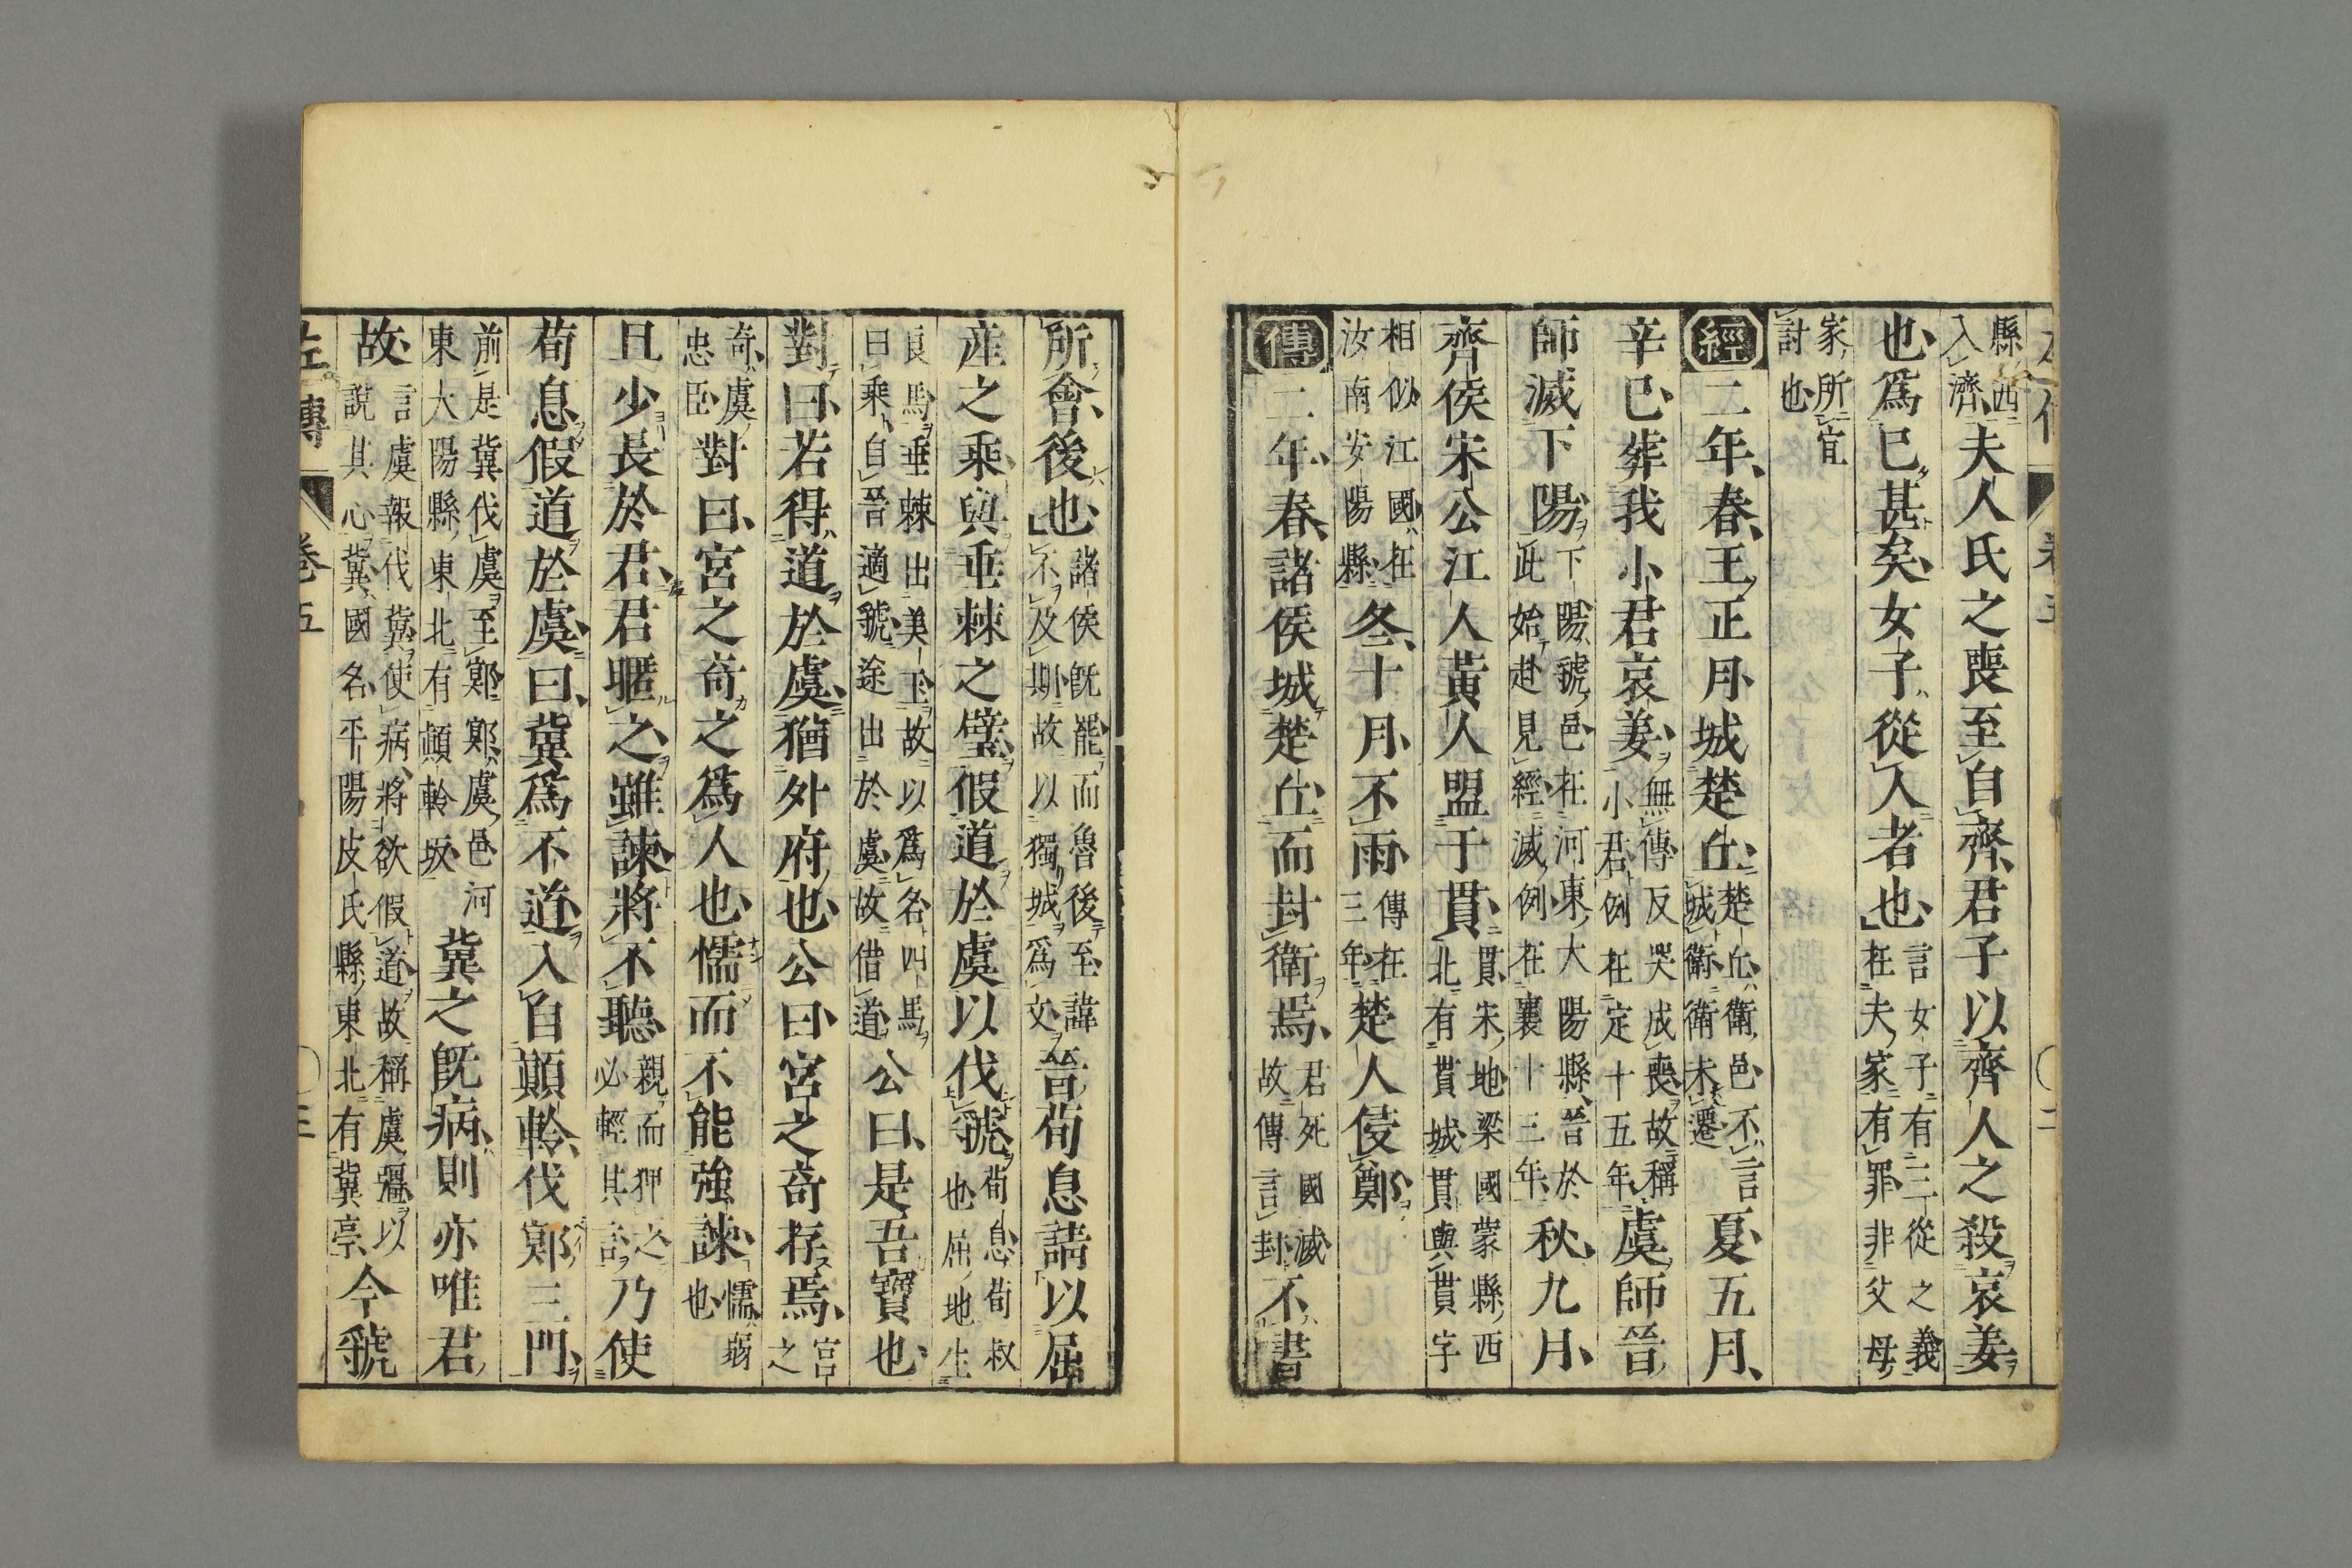 縣西入濟夫人氏之喪至自齊君子以齊人之殺哀姜
也爲已甚矣女子從人者也言女子有三從之義在夫家有罪非父母
家所宜討也
經二年春王正月城楚丘楚丘衛邑不言城衛衛未遷夏五月
辛巳葬我小君哀姜無傳反哭成喪故稱小君例在定十五年虞師晉
師滅下陽下陽虢邑在河東大陽縣晉於此始赴見經滅例在襄十三年秋九月
齊侯宋公江人黃人盟于貫貫宋地梁國蒙縣西北有貰城貰與貫字
相似江國在汝南安陽縣冬十月不雨傳在三年楚人侵鄭
傳二年春諸侯城楚丘而封衛焉君死國滅故傳言封不書
所會後也諸侯既罷而魯後至諱不及期故以獨城爲文晉荀息請以屈
産之乘與垂棘之璧假道於虞以伐虢荀息荀叔也屈地生
良馬垂棘出美玉故以爲名四馬曰乘自晉適虢途出於虞故借道公曰是吾寶也
對曰若得道於虞猶外府也公曰宮之奇存焉宮之
奇虞忠臣對曰宮之奇之爲人也懦而不能強諫懦弱也
且少長於君君暱之雖諫將不聽親而狎之必輕其言乃使
荀息假道於虞曰冀爲不道入自顚軨伐鄍三門
前是冀伐虞至鄍鄍虞邑河東大陽縣東北有顚軨坂冀之既病則亦唯君
故言虞報伐冀使病將欲假道故稱虞彊以說其心冀國名平陽皮氏縣東北有冀亭今虢
左傳 卷五 三